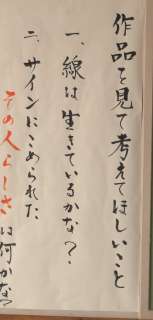 作品を見て考えてほしいこと
一、線は生きているかな？
二、サインにこめられた
その人らしさは何かな？